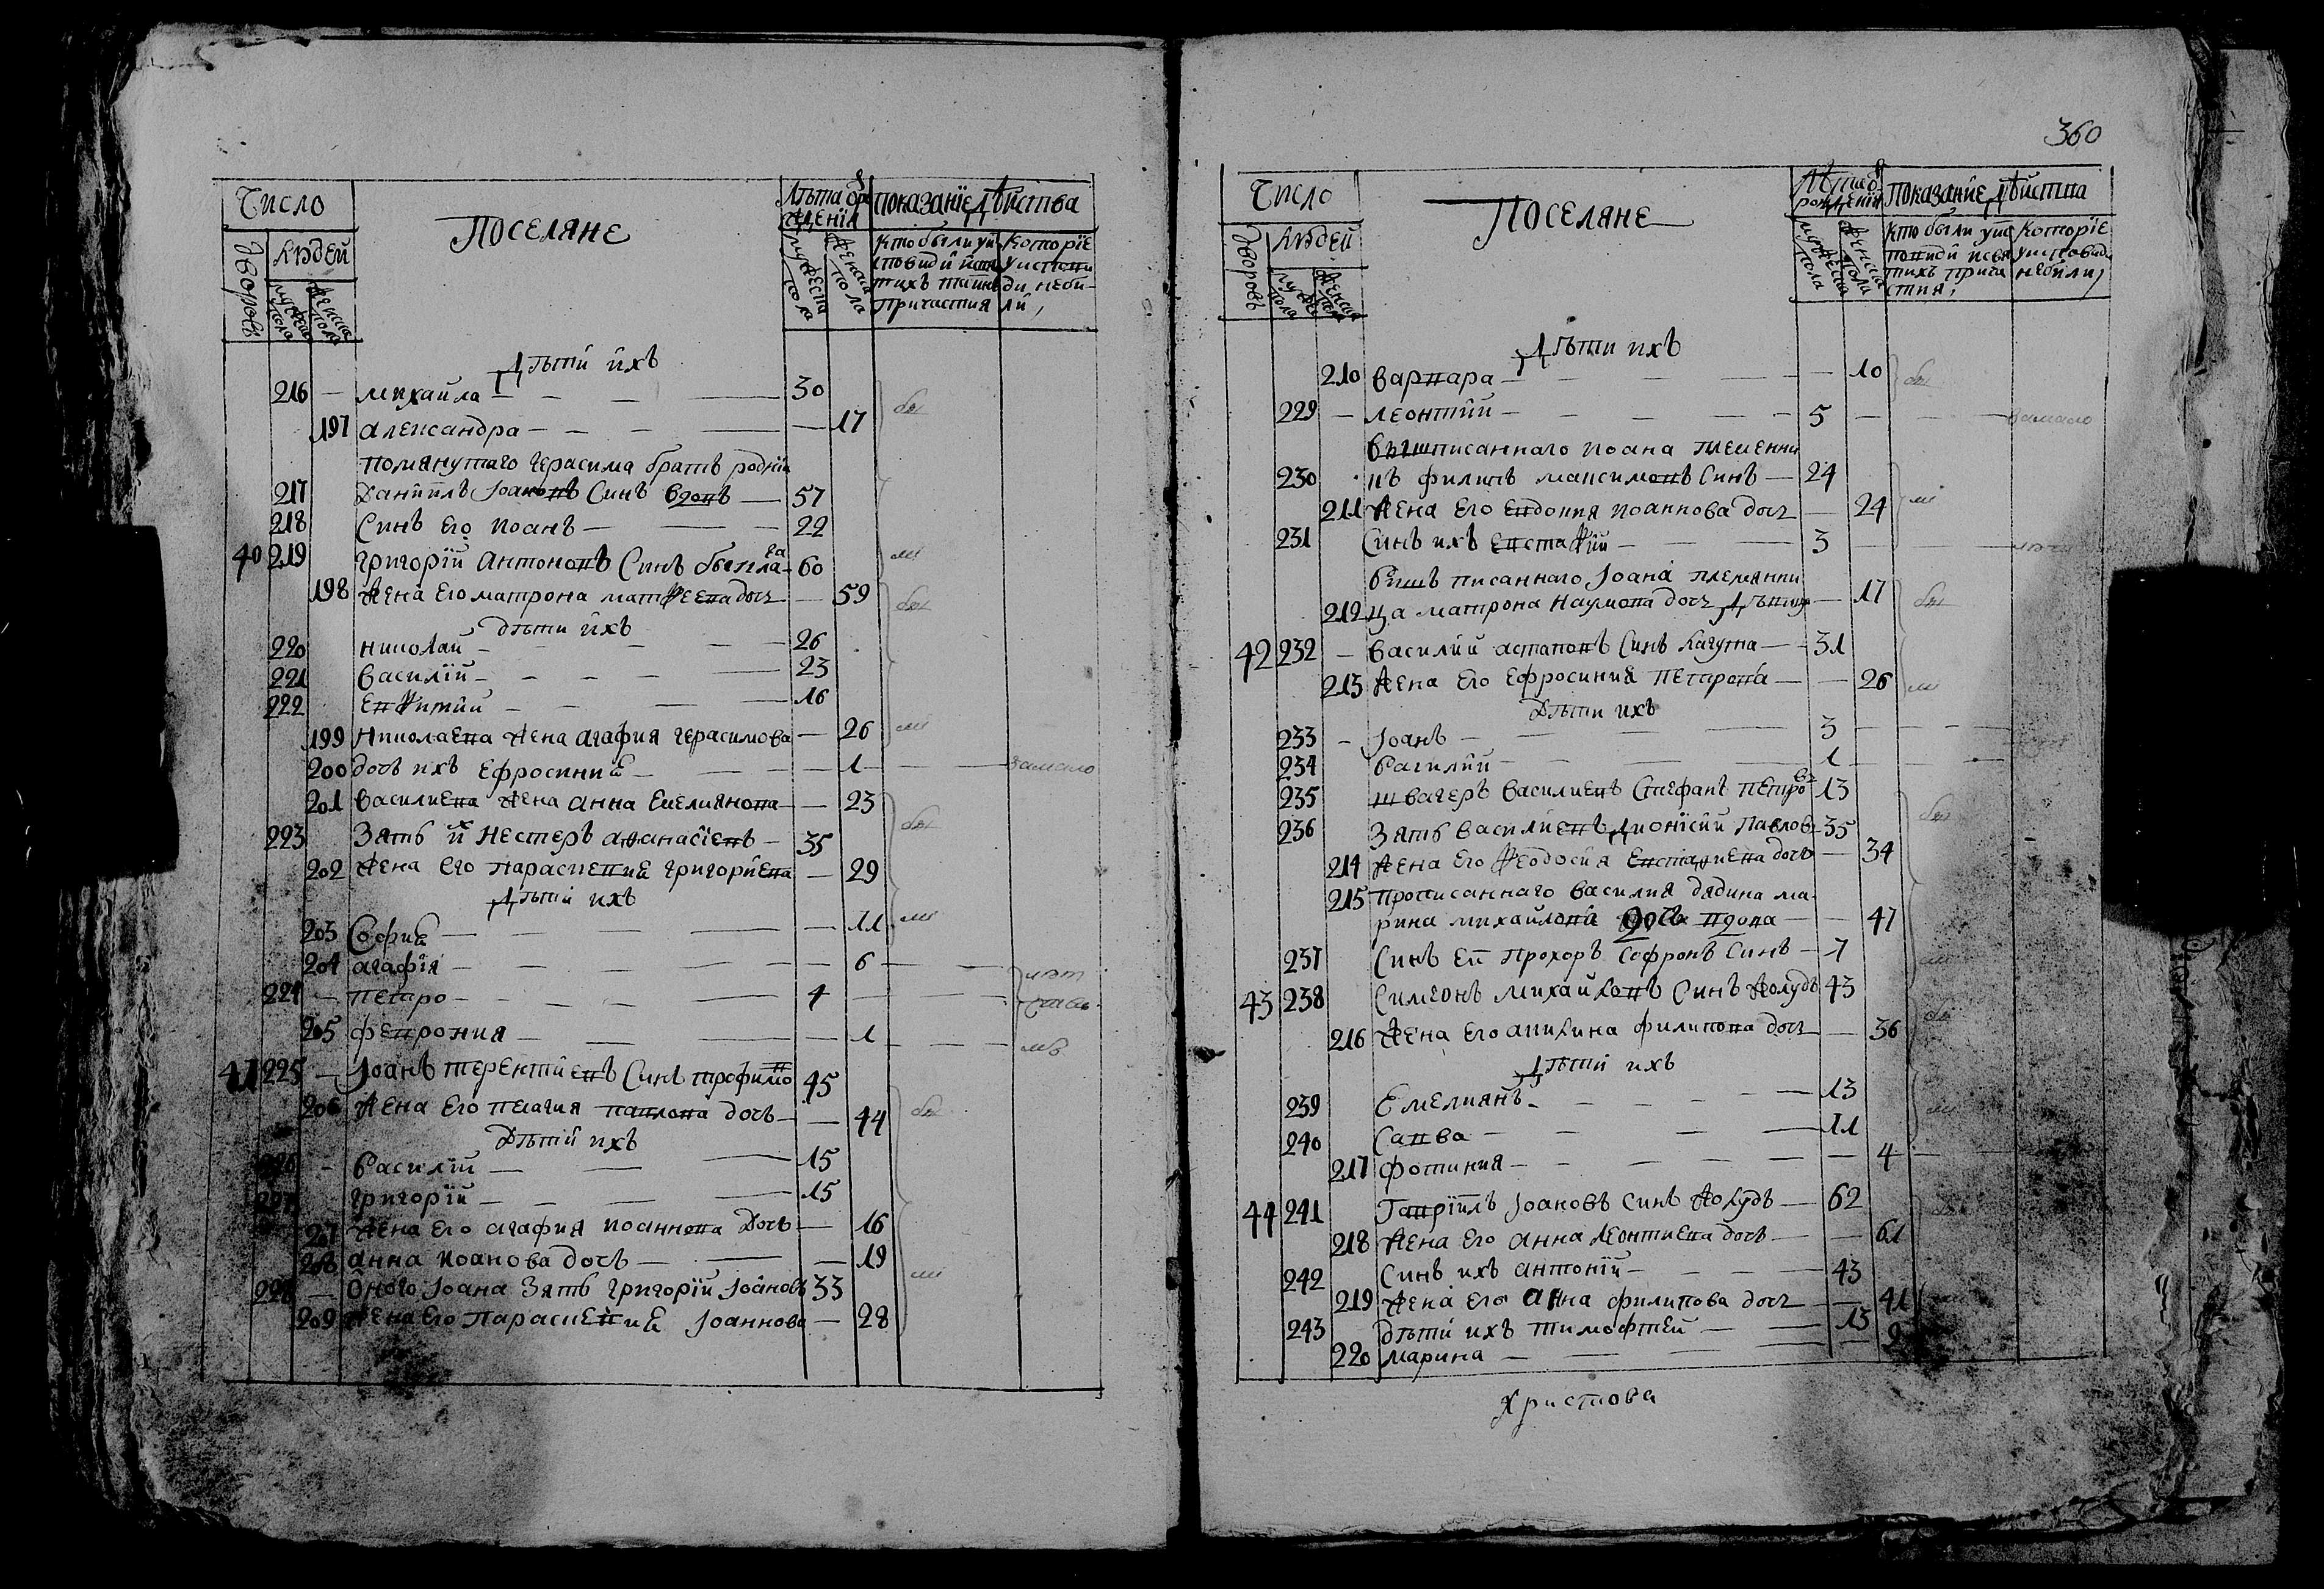 Число
ПОСЕЛЯНЕ
Лѣта ѿ рождения
показанїе дѣйства
дворовъ
людей
мужеска пола
женска пола
мужеска пола
женска пола
кто были у исповиди и святихъ таинъ причастия
которїе у исповиди небили,
Дѣти ихъ
216 — михайла — 30
197 александра — 17
помянутаго герасима братъ роднїй
217 Данїилъ Іоановъ Синъ вдовъ — 57
218 Синъ его иоанъ — 22
40 219 григорїй антоновъ Синъ — 60
198 жена его матрона матфеева дочъ — 59
дѣти ихъ
220 николай — 26
221 василїй — 23
222 евфимий — 16
199 николаева жена агафия герасимова — 26
200 дочъ ихъ ефросиния — 1 — замало
201 василиева жена анна емелиянова — 23
223 Зять ихъ нестеръ афанасїевъ — 35
202 жена его параскевия григориева — 29
Дѣти ихъ
203 София — 11
204 агафїя — 6
224 — петро — 4
205 феврония — 1
41 225 — Іоанъ терентиевъ Синъ трофимо 45
206 жена его пелагия павлова дочъ — 44
Дѣтій ихъ
226 — василїй — 15
227 григорїй — 15
207 жена его агафия иоаннова дочъ — 16
208 анна иоанова дочъ — 19
228 — оного Іоана Зять григорїй Іоановъ 33
209 жена его параскевиа Іоаннова — 28
360
Число
ПОСЕЛЯНЕ
Лѣта ѿ рождения
Показание дѣйства
дворовъ
людей
мужеска пола
женска пола
мужеска пола
женска пола
кто были у исповиди и святихъ причастия,
которїе у исповиди небили,
Дѣти ихъ
210 варвара — 10
229 — леонтий — 5 — замало
вышписаннаго иоана племенни
230 къ филипъ максимовъ Синъ — 24
211 жена его евдокия иоаннова дочъ — 24
231 Синъ ихъ евстафий — 3
вишъ писаннаго Іоана племянни
212 ца матрона наумова дочъ дѣвица — 17
42 232 — василий астаповъ Синъ лагута — 31
213 жена его ефросиния петрова — 26
Дѣти ихъ
233 — Іоанъ — 3
234 василий — 1
235 швагеръ василиевъ Стефанъ петровъ 13
236 Зять василиевъ дионисий павлов — 35
214 жена его феодосия евстафиева дочъ — 34
215 прописаннаго василия дядина ма-
рина михайлова дочъ вдова — 47
237 Синъ ей прохоръ Софронъ Синъ — 7
43 238 Симеонъ михайловъ Синъ жолудъ 43
216 жена его акилина филипова дочъ — 36
Дѣтій ихъ
239 Емелиянъ — 13
240 Савва — 11
217 фотиния — 4
44 241 Гаврїилъ Іоановъ Синъ жолудъ — 62
218 жена его анна леонтиева дочъ — 61
242 Синъ ихъ антонїй — 43
219 жена его анна филипова дочъ — 41
243 дѣти ихъ тимофтей — 13
220 марина — 9
Христова